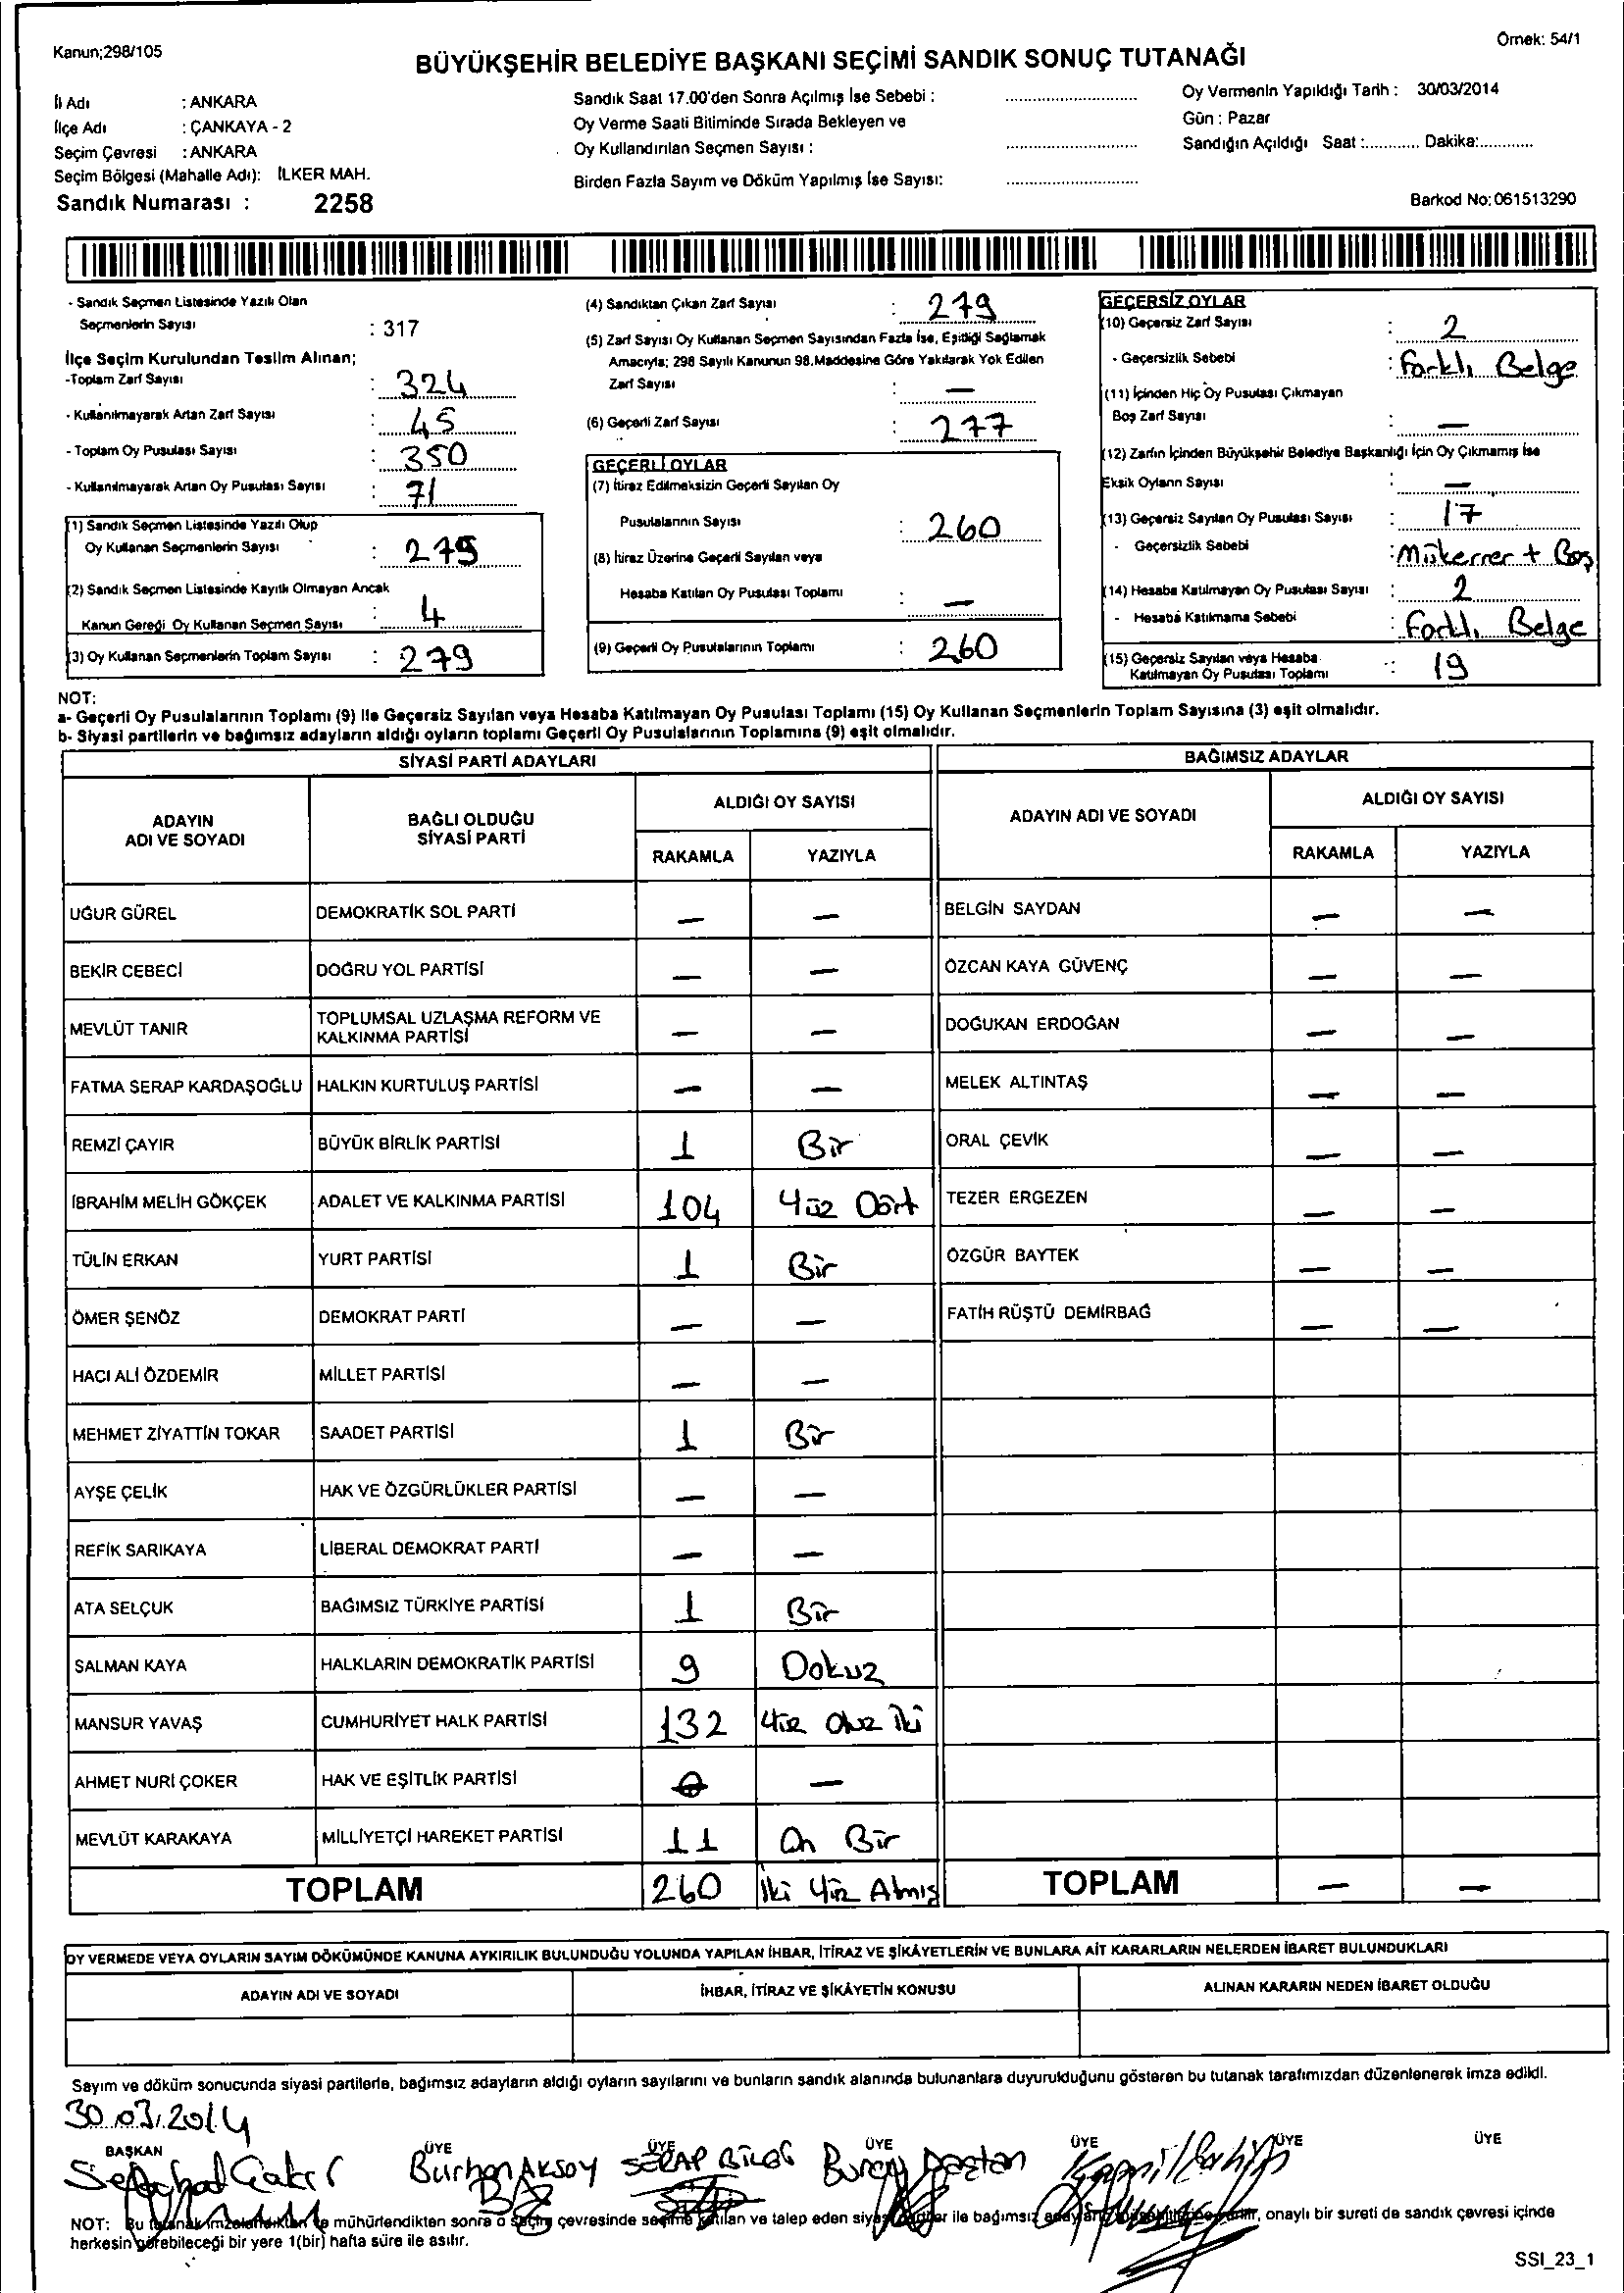 Kanun;298/105
Örnek: 54/1
BÜYÜKŞEHİR BELEDİYE BAŞKANI SEÇİMİ SANDIK SONUÇ TUTANAĞI
İl Adı : ANKARA
İlçe Adı : ÇANKAYA - 2
Seçim Çevresi : ANKARA
Seçim Bölgesi (Mahalle Adı): İLKER MAH.
Sandık Numarası : 2258
Sandık Saat 17.00'den Sonra Açılmış İse Sebebi :
Oy Verme Saati Bitiminde Sırada Bekleyen ve
Oy Kullandırılan Seçmen Sayısı :
Birden Fazla Sayım ve Döküm Yapılmış İse Sayısı:
Oy Vermenin Yapıldığı Tarih : 30/03/2014
Gün : Pazar
Sandığın Açıldığı Saat :............ Dakika:............
Barkod No:061513290
- Sandık Seçmen Listesinde Yazılı Olan
Seçmenlerin Sayısı : 317
İlçe Seçim Kurulundan Teslim Alınan;
-Toplam Zarf Sayısı : 324
- Kullanılmayarak Artan Zarf Sayısı : 45
- Toplam Oy Pusulası Sayısı : 350
- Kullanılmayarak Artan Oy Pusulası Sayısı : 71
(1) Sandık Seçmen Listesinde Yazılı Olup
Oy Kullanan Seçmenlerin Sayısı : 275
(2) Sandık Seçmen Listesinde Kayıtlı Olmayan Ancak
Kanun Gereği Oy Kullanan Seçmen Sayısı : 4
(3) Oy Kullanan Seçmenlerin Toplam Sayısı : 279
(4) Sandıktan Çıkan Zarf Sayısı : 279
(5) Zarf Sayısı Oy Kullanan Seçmen Sayısından Fazla İse, Eşitliği Sağlamak
Amacıyla; 298 Sayılı Kanunun 98.Maddesine Göre Yakılarak Yok Edilen
Zarf Sayısı : —
(6) Geçerli Zarf Sayısı : 277
GEÇERLİ OYLAR
(7) İtiraz Edilmeksizin Geçerli Sayılan Oy
Pusulalarının Sayısı : 260
(8) İtiraz Üzerine Geçerli Sayılan veya
Hesaba Katılan Oy Pusulası Toplamı : —
(9) Geçerli Oy Pusulalarının Toplamı : 260
GEÇERSİZ OYLAR
(10) Geçersiz Zarf Sayısı : 2
- Geçersizlik Sebebi : Farklı Belge
(11) İçinden Hiç Oy Pusulası Çıkmayan
Boş Zarf Sayısı : —
(12) Zarfın İçinden Büyükşehir Belediye Başkanlığı İçin Oy Çıkmamış İse
Eksik Oyların Sayısı : —
(13) Geçersiz Sayılan Oy Pusulası Sayısı : 17
- Geçersizlik Sebebi : Mükerrer + Boş
(14) Hesaba Katılmayan Oy Pusulası Sayısı : 2
- Hesaba Katılmama Sebebi : Farklı Belge
(15) Geçersiz Sayılan veya Hesaba
Katılmayan Oy Pusulası Toplamı : 19
NOT:
a- Geçerli Oy Pusulalarının Toplamı (9) ile Geçersiz Sayılan veya Hesaba Katılmayan Oy Pusulası Toplamı (15) Oy Kullanan Seçmenlerin Toplam Sayısına (3) eşit olmalıdır.
b- Siyasi partilerin ve bağımsız adayların aldığı oyların toplamı Geçerli Oy Pusulalarının Toplamına (9) eşit olmalıdır.
SİYASİ PARTİ ADAYLARI
ADAYIN ADI VE SOYADI
BAĞLI OLDUĞU SİYASİ PARTİ
ALDIĞI OY SAYISI
RAKAMLA YAZIYLA
UĞUR GÜREL DEMOKRATİK SOL PARTİ — —
BEKİR CEBECİ DOĞRU YOL PARTİSİ — —
MEVLÜT TANIR TOPLUMSAL UZLAŞMA REFORM VE KALKINMA PARTİSİ — —
FATMA SERAP KARDAŞOĞLU HALKIN KURTULUŞ PARTİSİ — —
REMZİ ÇAYIR BÜYÜK BİRLİK PARTİSİ 1 Bir
İBRAHİM MELİH GÖKÇEK ADALET VE KALKINMA PARTİSİ 104 Yüz Dört
TÜLİN ERKAN YURT PARTİSİ 1 Bir
ÖMER ŞENÖZ DEMOKRAT PARTİ — —
HACI ALİ ÖZDEMİR MİLLET PARTİSİ — —
MEHMET ZİYATTİN TOKAR SAADET PARTİSİ 1 Bir
AYŞE ÇELİK HAK VE ÖZGÜRLÜKLER PARTİSİ — —
REFİK SARIKAYA LİBERAL DEMOKRAT PARTİ — —
ATA SELÇUK BAĞIMSIZ TÜRKİYE PARTİSİ 1 Bir
SALMAN KAYA HALKLARIN DEMOKRATİK PARTİSİ 9 Dokuz
MANSUR YAVAŞ CUMHURİYET HALK PARTİSİ 132 Yüz Otuz İki
AHMET NURİ ÇOKER HAK VE EŞİTLİK PARTİSİ 0 —
MEVLÜT KARAKAYA MİLLİYETÇİ HAREKET PARTİSİ 11 On Bir
TOPLAM 260 İki Yüz Atmış
BAĞIMSIZ ADAYLAR
ADAYIN ADI VE SOYADI
ALDIĞI OY SAYISI
RAKAMLA YAZIYLA
BELGİN SAYDAN — —
ÖZCAN KAYA GÜVENÇ — —
DOĞUKAN ERDOĞAN — —
MELEK ALTINTAŞ — —
ORAL ÇEVİK — —
TEZER ERGEZEN — —
ÖZGÜR BAYTEK — —
FATİH RÜŞTÜ DEMİRBAĞ — —
TOPLAM — —
OY VERMEDE VEYA OYLARIN SAYIM DÖKÜMÜNDE KANUNA AYKIRILIK BULUNDUĞU YOLUNDA YAPILAN İHBAR, İTİRAZ VE ŞİKÂYETLERİN VE BUNLARA AİT KARARLARIN NELERDEN İBARET BULUNDUKLARI
ADAYIN ADI VE SOYADI İHBAR, İTİRAZ VE ŞİKÂYETİN KONUSU ALINAN KARARIN NEDEN İBARET OLDUĞU
Sayım ve döküm sonucunda siyasi partilerle, bağımsız adayların aldığı oyların sayılarını ve bunların sandık alanında bulunanlara duyurulduğunu gösteren bu tutanak tarafımızdan düzenlenerek imza edildi.
30.03.2014
BAŞKAN ÜYE ÜYE ÜYE ÜYE ÜYE ÜYE
Burhan AKSOY SERAP BİLGİ
NOT: Bu tutanak imzalandıktan ve mühürlendikten sonra o seçim çevresinde seçime katılan ve talep eden siyasi partiler ile bağımsız adaylara onaylı bir sureti de sandık çevresi içinde
herkesin görebileceği bir yere 1(bir) hafta süre ile asılır.
SSI_23_1